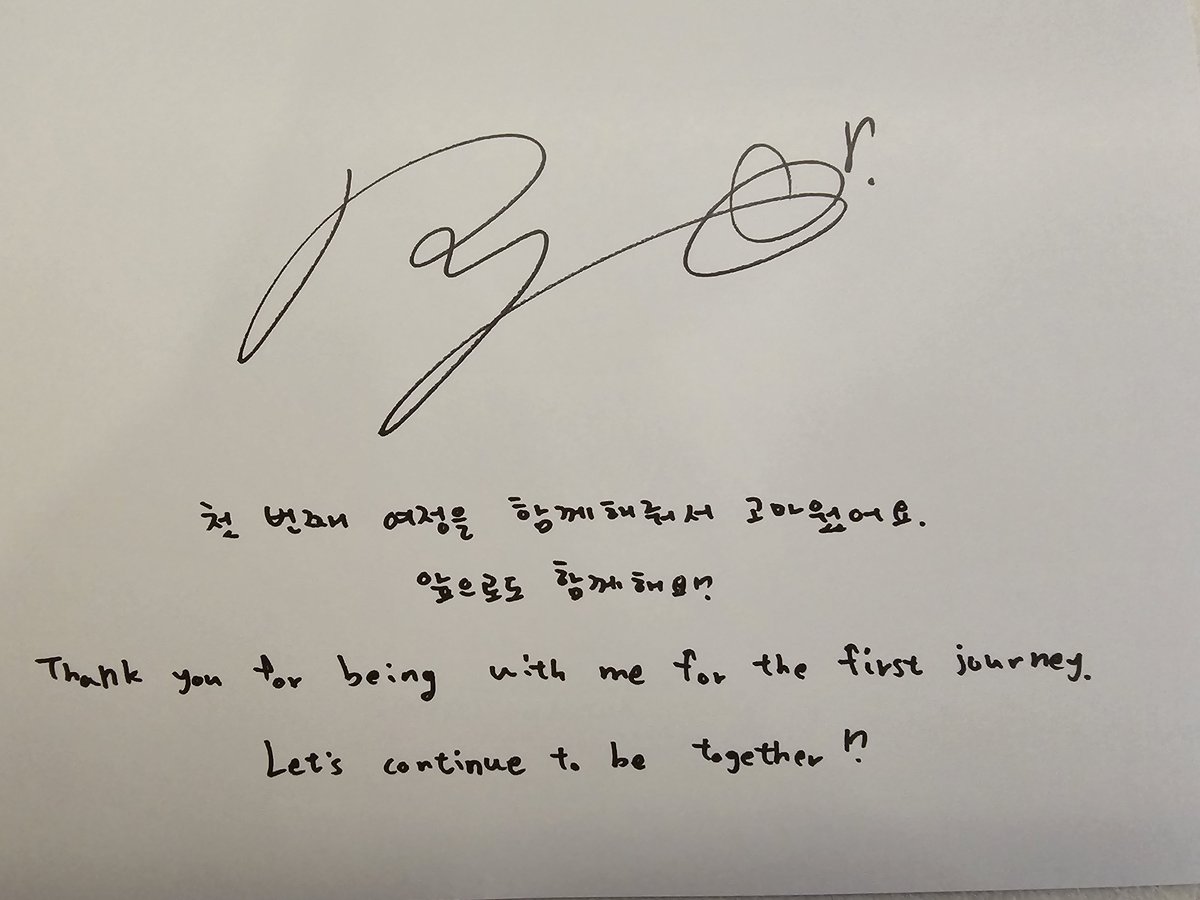 천 번째 여정을 함께해줘서 고마웠어요.
앞으로도 함께해요!
Thank you for being with me for the first journey.
Let's continue to be together!